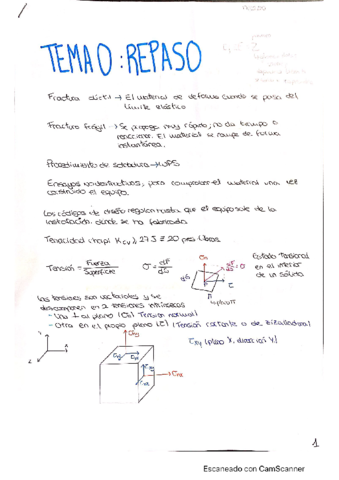 TEMA 0: REPASO
Fractura dúctil → El material se deforma cuando se pasa del
límite elástico
Fractura Frágil → Se propaga muy rápido, no da tiempo a
reaccionar. El material se rompe de forma
instantánea.
Procedimiento de soldadura → WPS
Ensayos no destructivos, para comprobar el material una vez
construido el equipo.
Los códigos de diseño regulan hasta que el equipo sale de la
instalación donde se ha fabricado
Tenacidad charpi KCV, 27 J ≅ 20 pies libras.
Tensión = Fuerza / Superficie
σ = dF / dΩ
Estado Tensional
en el interior
de un sólido
Las tensiones son vectoriales y se
descomponen en tensiones intrínsecas
- Una ⊥ al plano (σ) (Tensión normal)
- Otra en el propio plano (τ) (Tensión cortante o de cizalladura)
τxy (plano X, dirección Y)
1
Escaneado con CamScanner